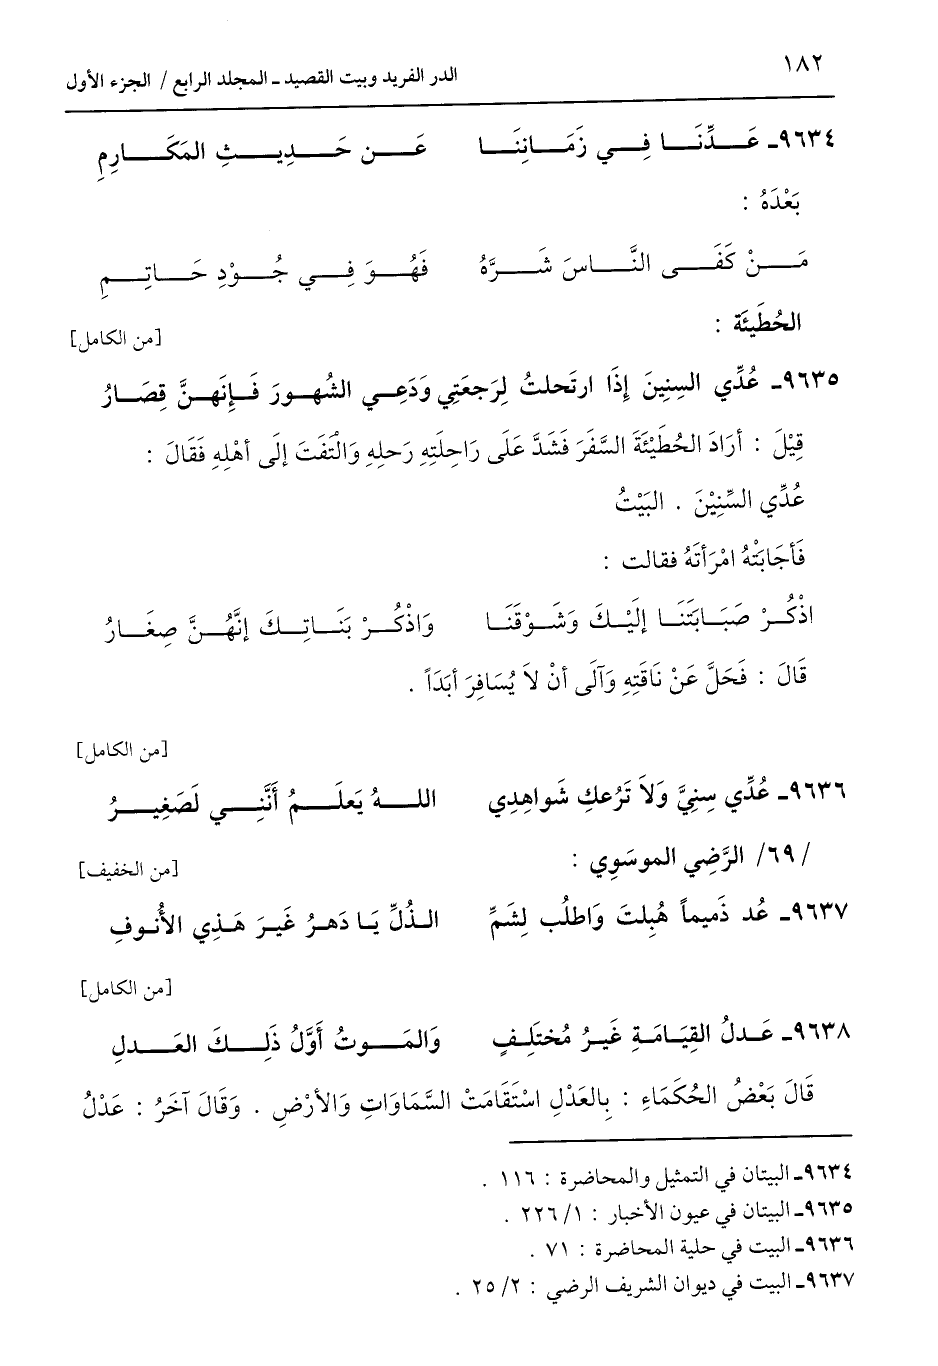 ١٨٢
الدر الفريد وبيت القصيد ـ المجلد الرابع / الجزء الأول
٩٦٣٤ـ عَـدِّنَـا فِـي زَمَـانِنَـا عَـن حَـدِيـثِ المَكَـارِمِ
بَعْدَهُ :
مَـنْ كَفَـى النَّـاسَ شَـرَّهُ فَهُـوَ فِـي جُـوْدِ حَـاتِـمِ
الحُطَيئَة :
[من الكامل]
٩٦٣٥ـ عُدِّي السِنِينَ إِذَا ارتَحلتُ لِرَجعَتِي وَدَعِـي الشُهورَ فَـإِنَهنَّ قِصَارُ
قِيْلَ : أرَادَ الحُطَيْئَةَ السَّفَرَ فَشَدَّ عَلَى رَاحِلَتِهِ رَحلِهِ وَالْتَفَتَ إلَى أهْلِهِ فَقَالَ :
عُدِّي السِّنِيْنَ . البَيْتُ
فَأجَابَتْهُ امْرَأتَهُ فقالت :
اذْكُـرْ صَبَـابَتَنَـا إلَيْـكَ وَشَـوْقَنَـا وَاذْكُـرْ بَنَـاتِـكَ إنَّهُـنَّ صِغَـارُ
قَالَ : فَحَلَّ عَنْ نَاقَتِهِ وَآلَى أنْ لاَ يُسَافِرَ أبَدَاً .
[من الكامل]
٩٦٣٦ـ عُدِّي سِنِيَّ وَلاَ تَرُعكِ شَواهِدِي اللـهُ يَعلَـمُ أَنَّنِـي لَصَغِيـرُ
/٦٩/ الرَّضِي الموسَوِي :
[من الخفيف]
٩٦٣٧ـ عُد ذَميماً هُبِلتَ وَاطلُب لِشَمِّ الـذُلِّ يَـا دَهـرُ غَيـرَ هَـذِي الأُنـوفِ
[من الكامل]
٩٦٣٨ـ عَـدلُ القِيَامَـةِ غَيـرُ مُختَلِـفٍ وَالمَـوتُ أَوَّلُ ذَلِـكَ العَـدلِ
قَالَ بَعْضُ الحُكَمَاءِ : بِالعَدْلِ اسْتَقَامَتْ السَّمَاوَاتِ وَالأرْضِ . وَقَالَ آخَرُ : عَدْلُ
٩٦٣٤ـ البيتان في التمثيل والمحاضرة : ١١٦ .
٩٦٣٥ـ البيتان في عيون الأخبار : ١/ ٢٢٦ .
٩٦٣٦ـ البيت في حلية المحاضرة : ٧١ .
٩٦٣٧ـ البيت في ديوان الشريف الرضي : ٢/ ٢٥ .